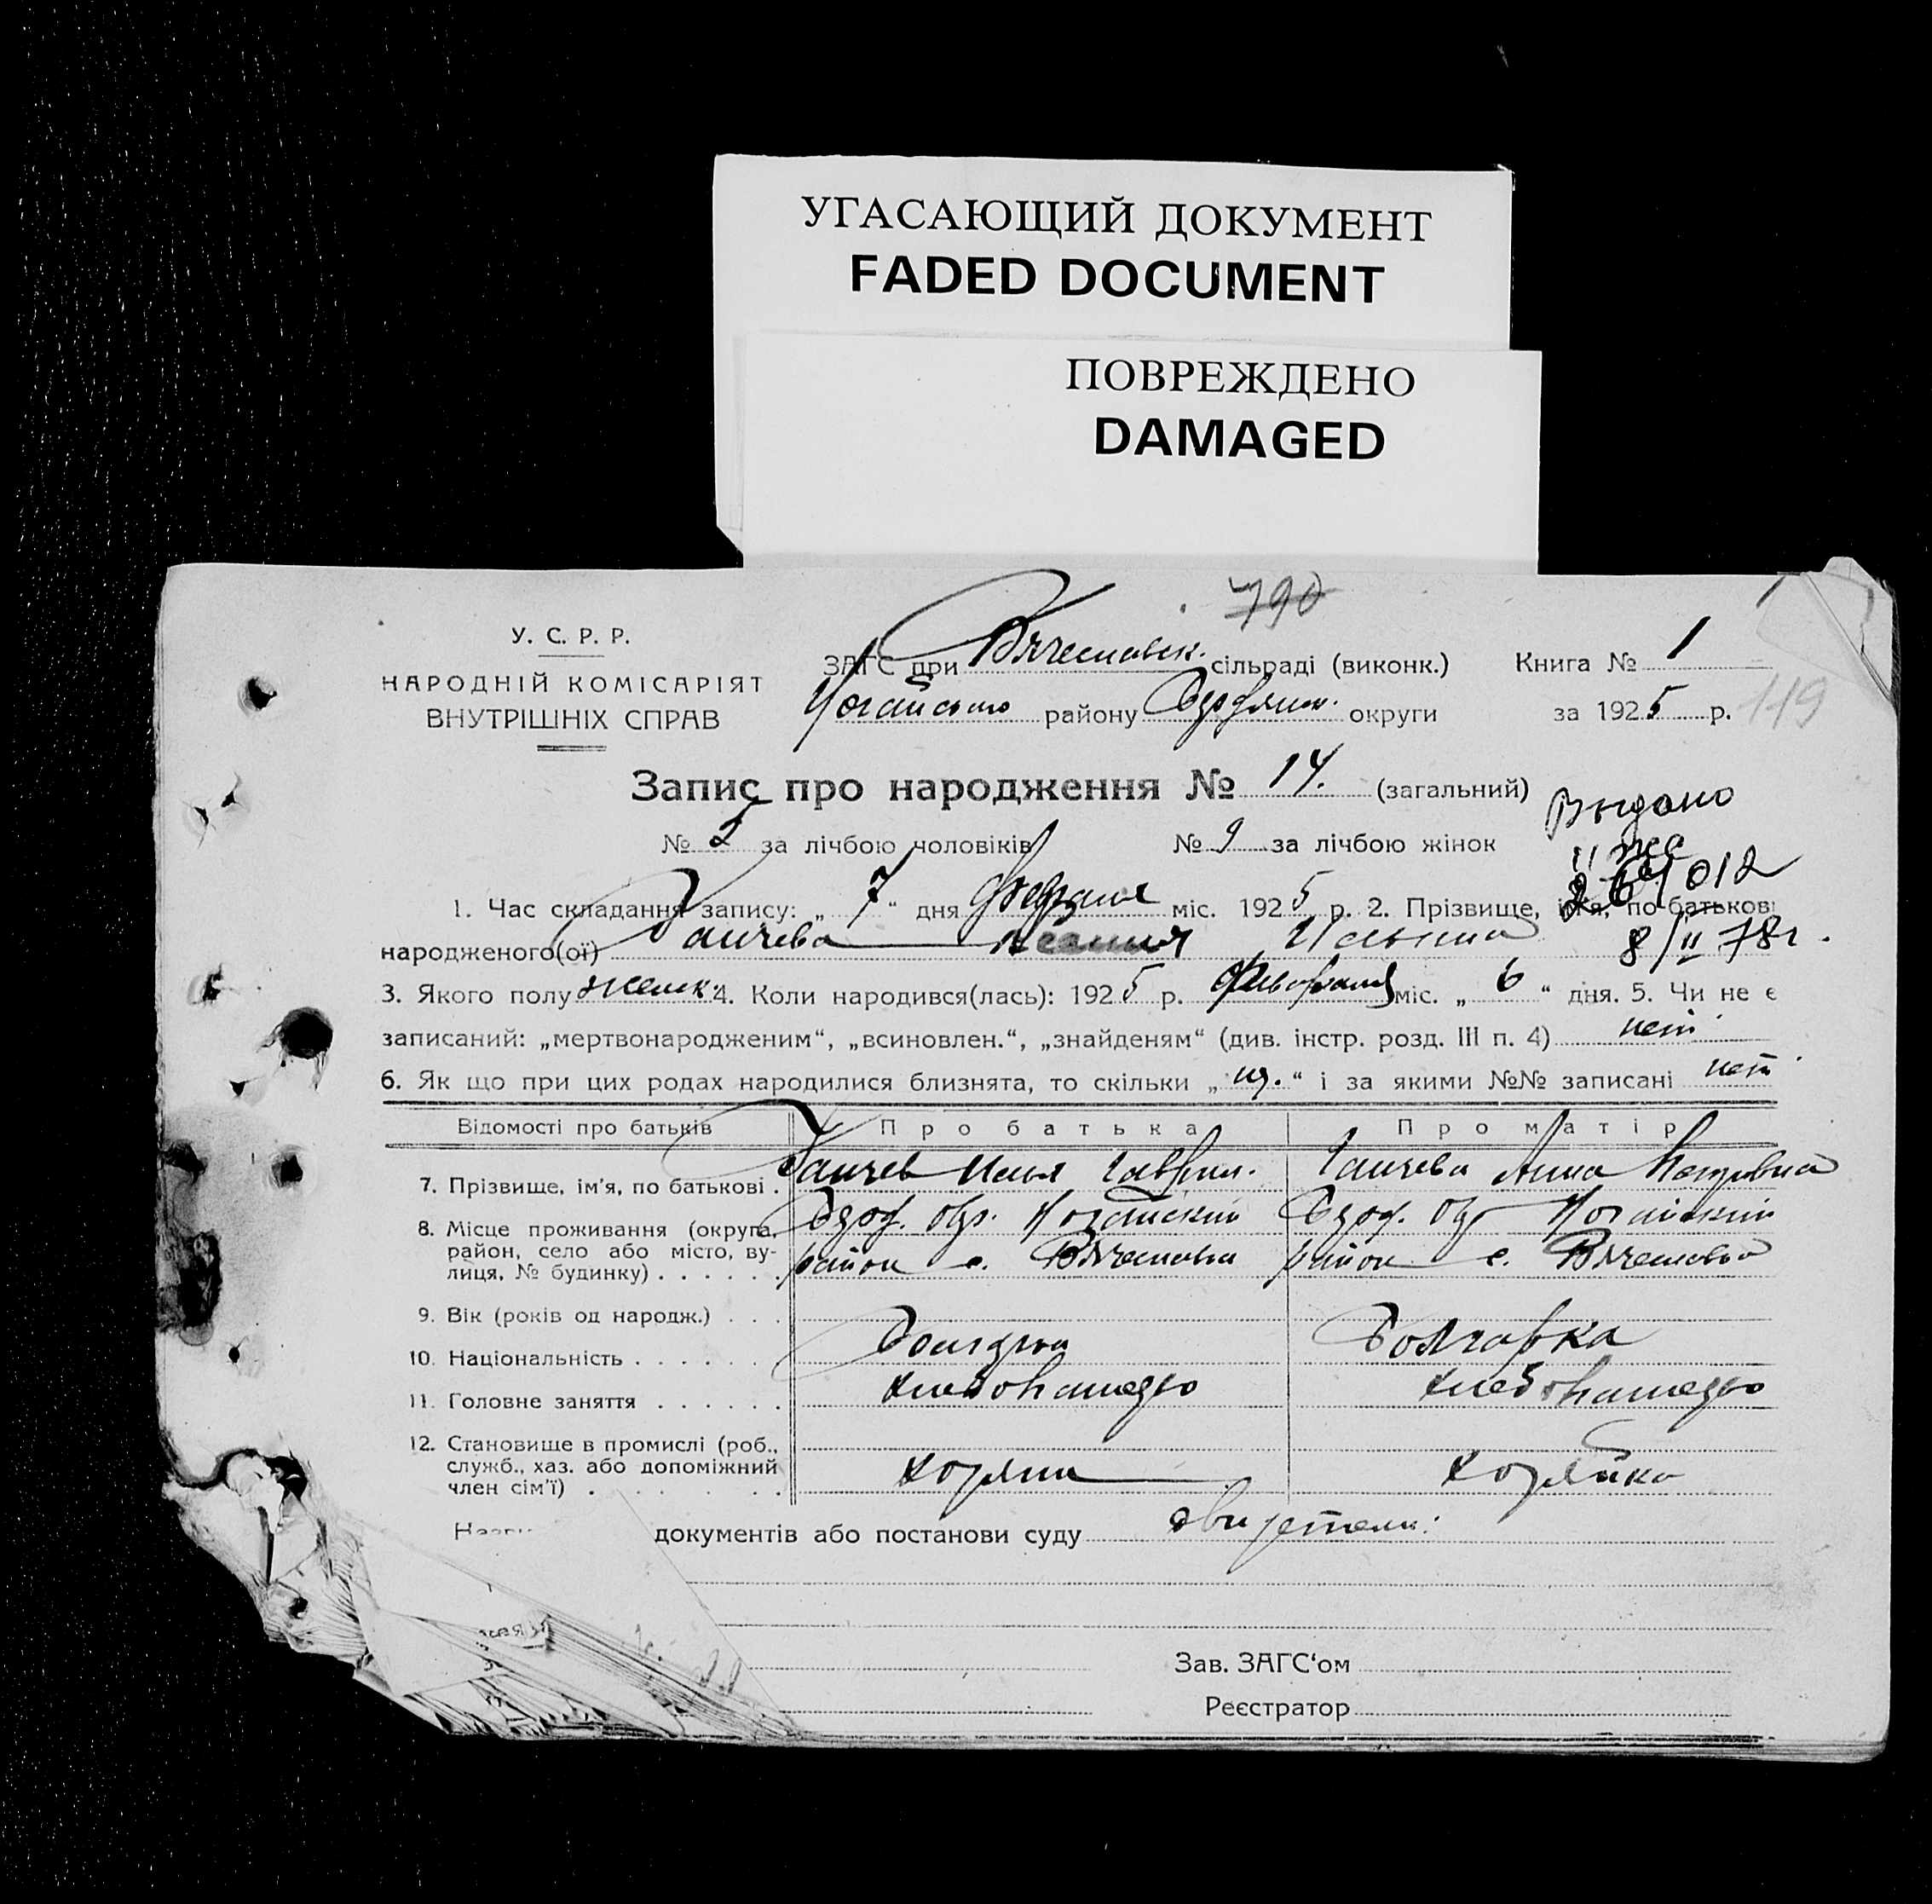 УГАСАЮЩИЙ ДОКУМЕНТ
FADED DOCUMENT
ПОВРЕЖДЕНО
DAMAGED
790
У. С. Р. Р.
НАРОДНІЙ КОМІСАРІЯТ
ВНУТРІШНІХ СПРАВ
ЗАГС при Вячеславск. сільраді (виконк.) Книга № 1
району округи за 1925 р. 119
Запис про народження № 14. (загальний)
Выдано
№ 5 за лічбою чоловіків № 9 за лічбою жінок
1. Час складання запису: „ 7 “ дня февраля міс. 1925 р. 2. Прізвище, ім'я, по батькові
народженого(ої) Ганчева Ильинична 8/II 78г.
3. Якого полу женск. 4. Коли народився(лась): 1925 р. февраля міс. „ 6 “ дня. 5. Чи не є
записаний: „мертвонародженим“, „всиновлен.“, „знайденям“ (див. інстр. розд. III п. 4) нет
6. Як що при цих родах народилися близнята, то скільки „ “ і за якими №№ записані нет
Відомості про батьків Про батька Про матір
7. Прізвище, ім'я, по батькові . Ганчев Илья Гаврил. Ганчева Анна Петровна
8. Місце проживання (округа, Ногайский Ногайский
район, село або місто, ву- район с. Вячеславка район с. Вячеславка
лиця, № будинку) . . . . . .
9. Вік (років од народж.) . . .
10. Національність . . . . . . Болгарин Болгарка
11. Головне заняття . . . . . . хлебопашество хлебопашество
12. Становище в промислі (роб.,
служб., хаз. або допоміжний хозяин хозяйка
член сім'ї) . . . . . .
документів або постанови суду свидетели:
Зав. ЗАГС'ом
Реєстратор